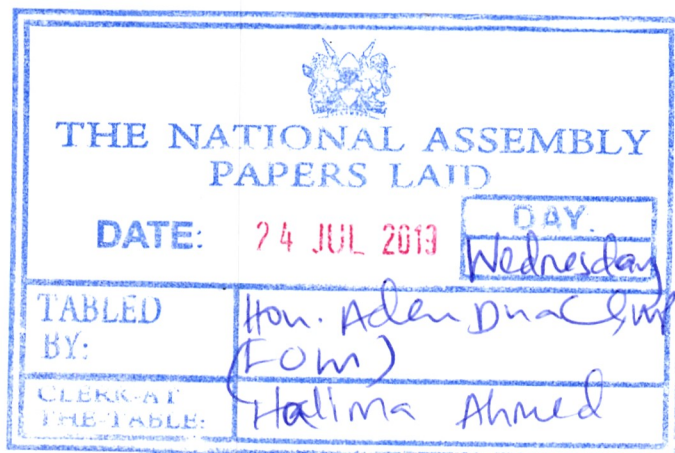 THE NATIONAL ASSEMBLY
PAPERS LAID
DATE: 24 JUL 2019
DAY.
Wednesday
TABLED BY:
Hon. Aden Duale, MP
(LOM)
CLERK-AT THE-TABLE:
Halima Ahmed